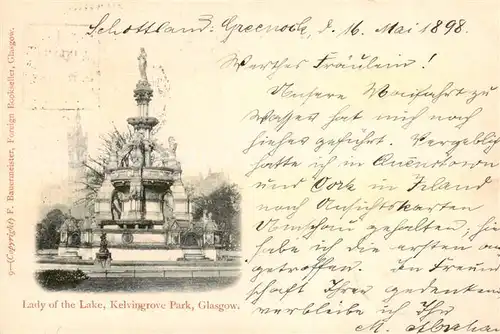 Schottland: Greenock, d. 16. Mai 1898.
Werthes Fräulein!
Unsere Maifahrt zu
Wasser hat mich noch
hieher geführt. Vergeblich
hatte ich in Queenstown
und Cork in Irland
nach Ansichtskarten
Umschau gehalten; hier
habe ich die ersten an-
getroffen. In Freund-
schaft Ihrer gedenkend
verbleibe ich Ihr
M.
9—(Copyright) F. Bauermeister, Foreign Bookseller, Glasgow.
Lady of the Lake, Kelvingrove Park, Glasgow.